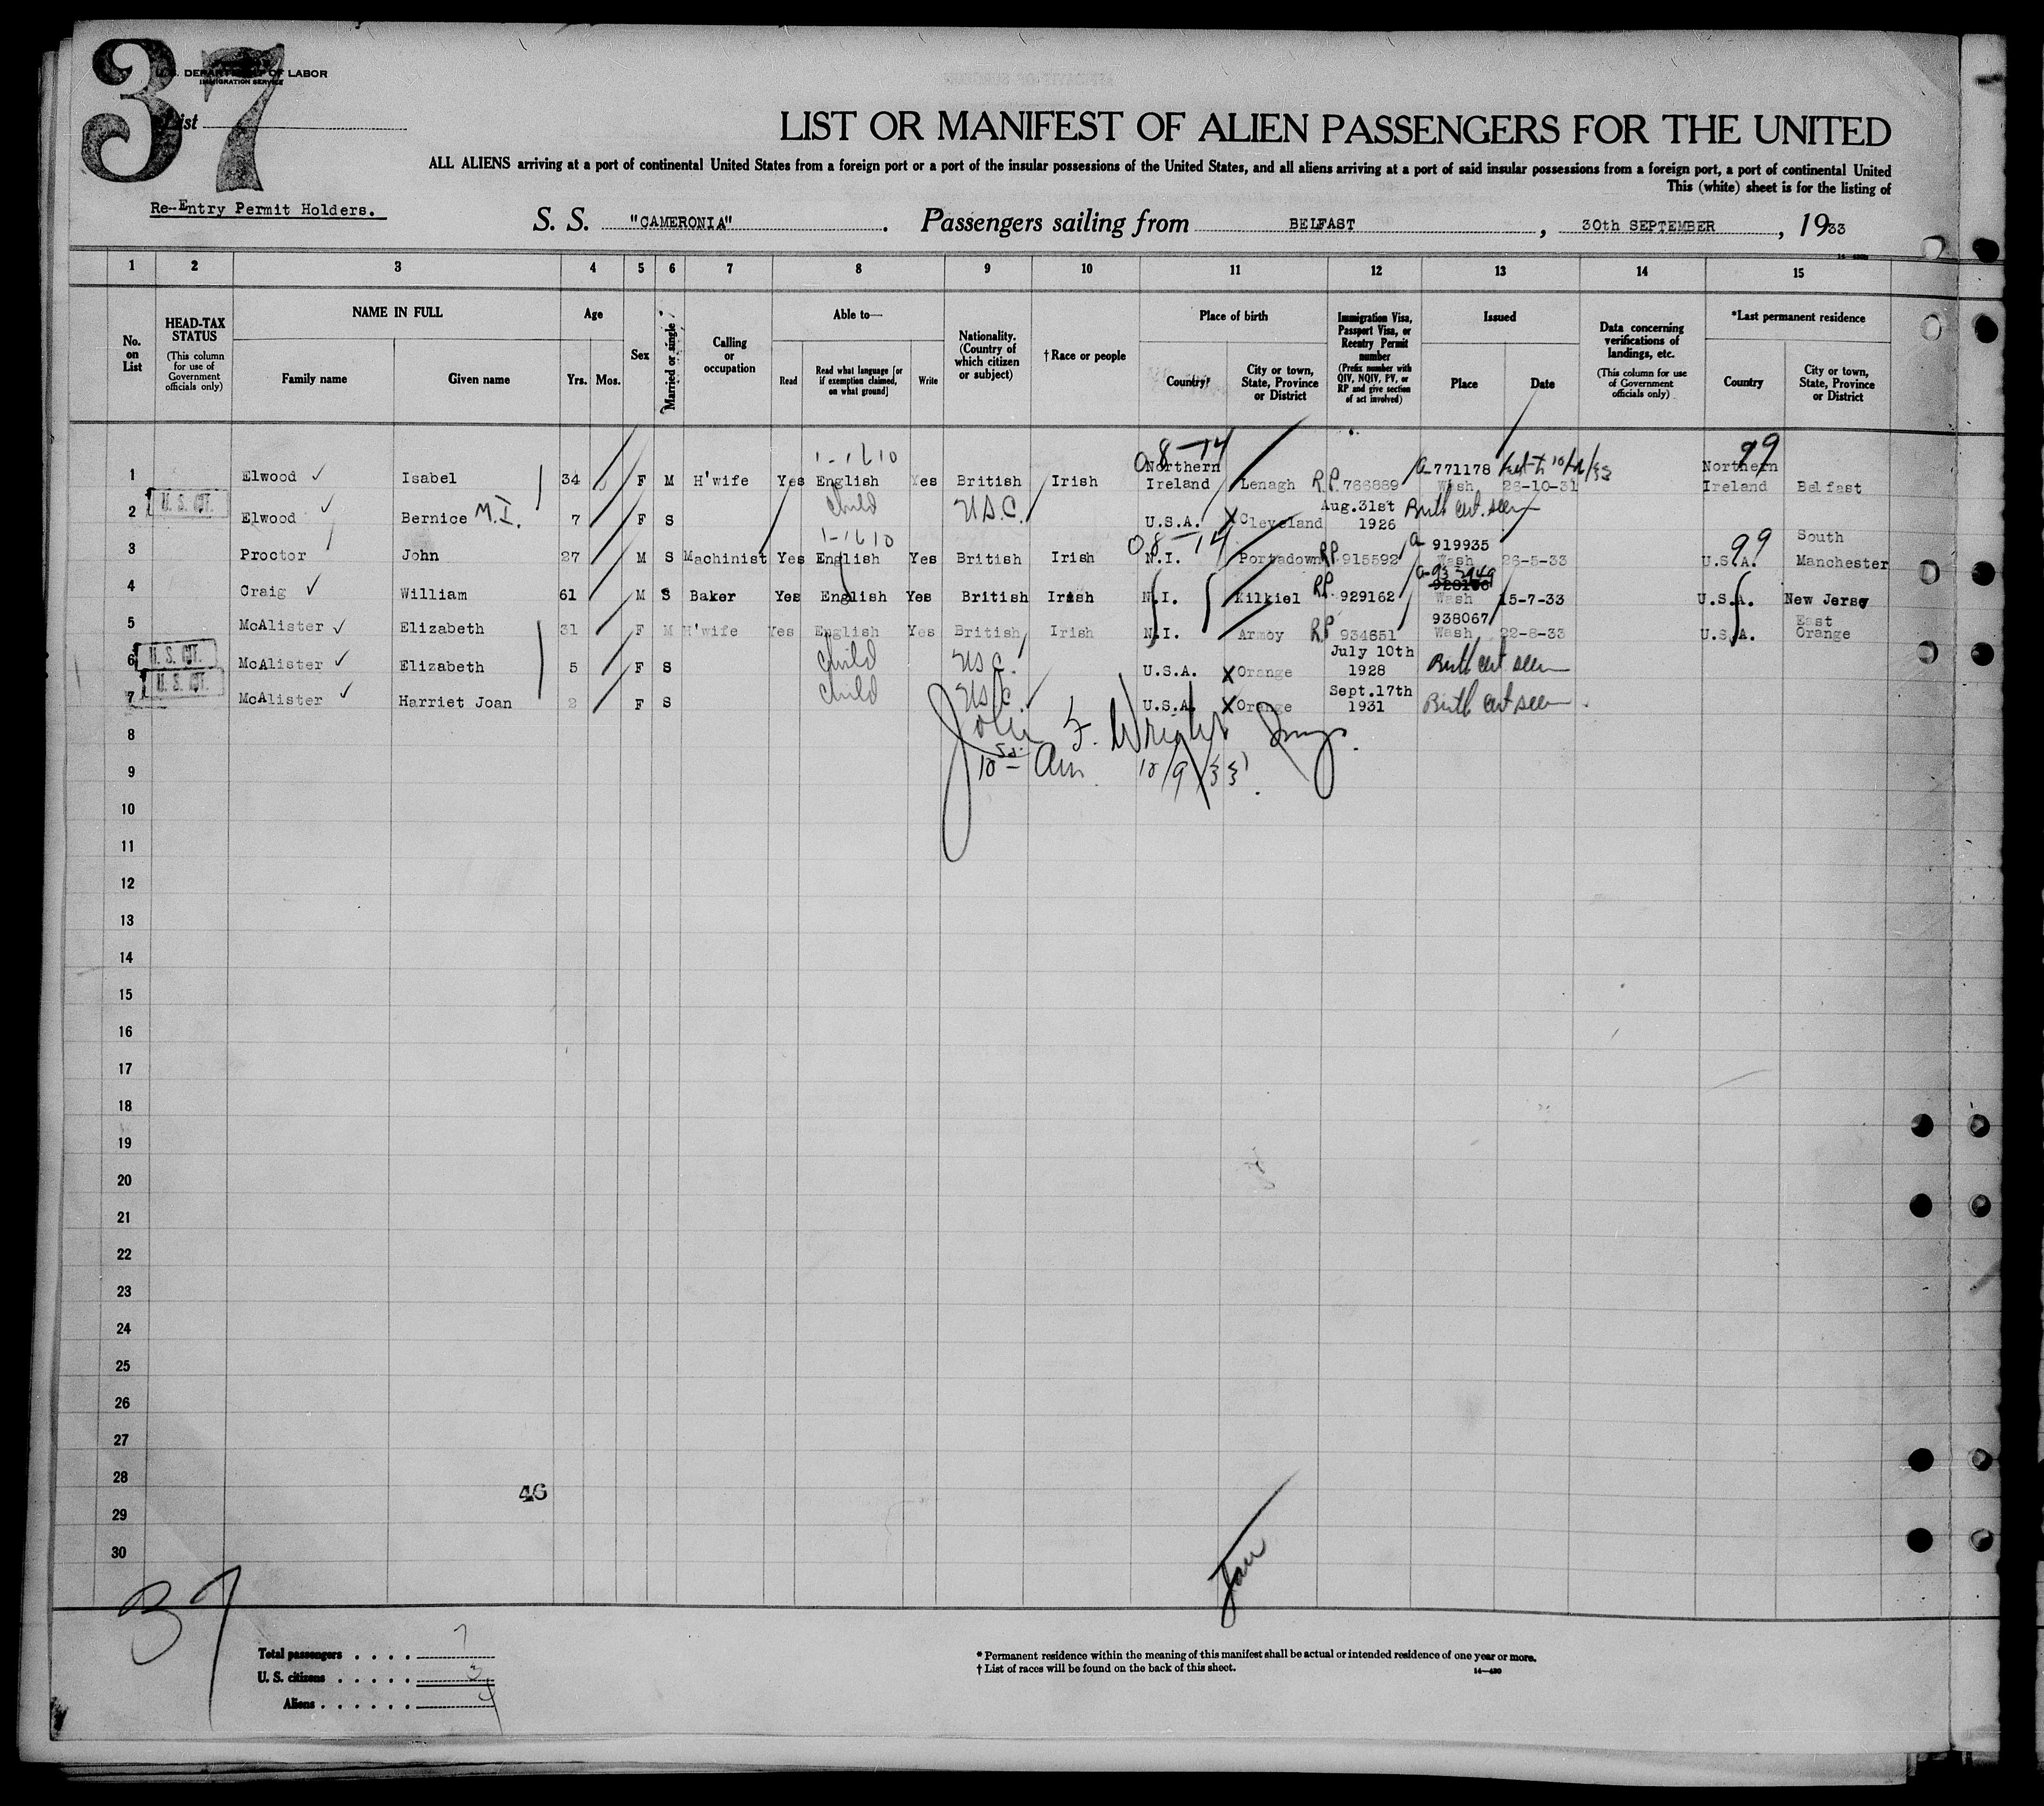 37
U.S. DEPARTMENT OF LABOR
IMMIGRATION SERVICE
List
LIST OR MANIFEST OF ALIEN PASSENGERS FOR THE UNITED
ALL ALIENS arriving at a port of continental United States from a foreign port or a port of the insular possessions of the United States, and all aliens arriving at a port of said insular possessions from a foreign port, a port of continental United
This (white) sheet is for the listing of
Re-Entry Permit Holders.
S. S. "CAMERONIA" . Passengers sailing from BELFAST , 30th SEPTEMBER , 1933
1 2 3 4 5 6 7 8 9 10 11 12 13 14 15
No. on List
HEAD-TAX STATUS (This column for use of Government officials only)
NAME IN FULL
Family name Given name
Age
Yrs. Mos.
Sex
Married or single
Calling or occupation
Able to—
Read Read what language [or if exemption claimed, on what ground] Write
Nationality. (Country of which citizen or subject)
† Race or people
Place of birth
Country City or town, State, Province or District
Immigration Visa, Passport Visa, or Reentry Permit number (Prefix number with QIV, NQIV, PV, or RP and give section of act involved)
Issued
Place Date
Data concerning verifications of landings, etc. (This column for use of Government officials only)
*Last permanent residence
Country City or town, State, Province or District
1-1610 08-14 99
1 Elwood Isabel 34 F M H'wife Yes English Yes British Irish Northern Ireland Lenagh R.P. 766889 a-771178 Wash 26-10-31 Northern Ireland Belfast
U. S. CIT.
2 Elwood Bernice M.I. 7 F S Child U.S.C. U.S.A. X Cleveland Aug.31st 1926 Birth cert. seen
1-1610 08-14 99
3 Proctor John 27 M S Machinist Yes English Yes British Irish N.I. Portadown RP. 915592 a- 919935 Wash 26-5-33 U.S.A. South Manchester
4 Craig William 61 M S Baker Yes English Yes British Irish N.I. Kilkiel RP. 929162 Wash 15-7-33 U.S.A. New Jersey
5 McAlister Elizabeth 31 F M H'wife Yes English Yes British Irish N.I. Armoy RP 934651 938067 Wash 22-8-33 U.S.A. East Orange
U. S. CIT.
6 McAlister Elizabeth 5 F S Child USC. U.S.A. X Orange July 10th 1928 Birth cert seen
U. S. CIT.
7 McAlister Harriet Joan 2 F S Child USC. U.S.A. X Orange Sept.17th 1931 Birth cert seen
John F. Wright Insp.
10 Am 10/9/33
8
9
10
11
12
13
14
15
16
17
18
19
20
21
22
23
24
25
26
27
28
46
29
30
37
Total passengers . . . . 7
U. S. citizens . . . . . 3
Aliens . . . . . . 4
* Permanent residence within the meaning of this manifest shall be actual or intended residence of one year or more.
† List of races will be found on the back of this sheet.
14—430